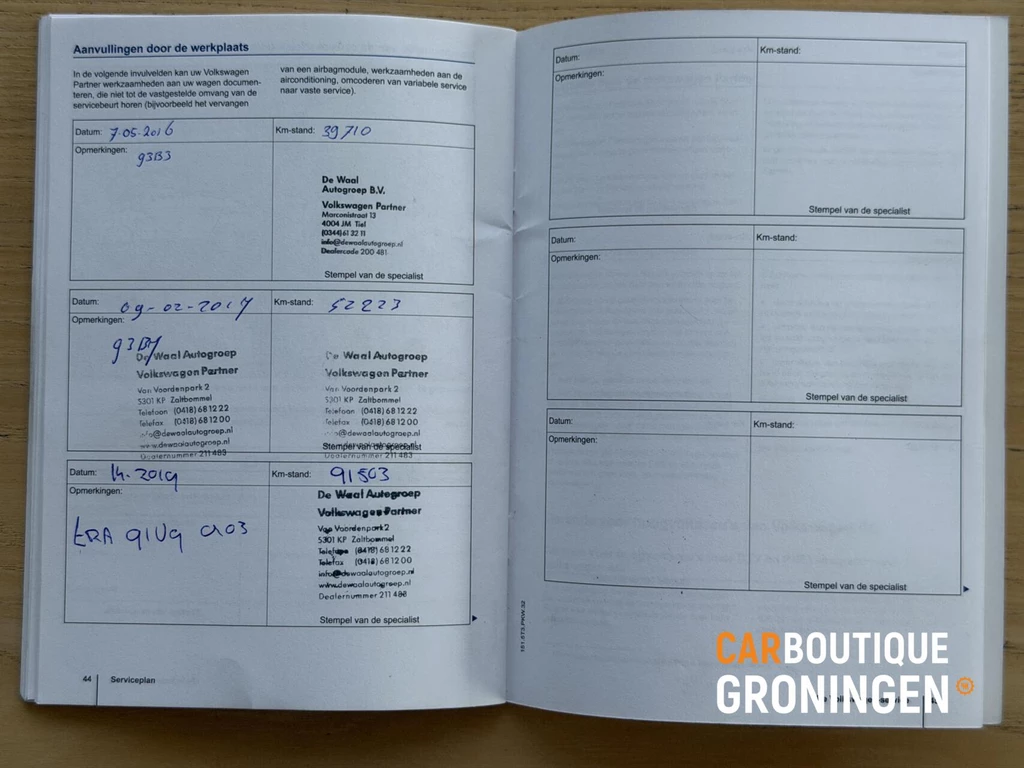 Aanvullingen door de werkplaats
In de volgende invulvelden kan uw Volkswagen
Partner werkzaamheden aan uw wagen documen-
teren, die niet tot de vastgestelde omvang van de
servicebeurt horen (bijvoorbeeld het vervangen
van een airbagmodule, werkzaamheden aan de
airconditioning, omcoderen van variabele service
naar vaste service).
Datum: 7-05-2016
Km-stand: 39710
Opmerkingen: 93B3
De Waal
Autogroep B.V.
Volkswagen Partner
Marconistraat 13
4004 JM Tiel
(0344) 61 32 11
info@dewaalautogroep.nl
Dealercode 200 481
Stempel van de specialist
Datum: 09-02-2017
Km-stand: 52223
Opmerkingen:
De Waal Autogroep
Volkswagen Partner
Van Voordenpark 2
5301 KP Zaltbommel
Telefoon (0418) 68 12 22
Telefax (0418) 68 12 00
info@dewaalautogroep.nl
www.dewaalautogroep.nl
Dealernummer 211 483
De Waal Autogroep
Volkswagen Partner
Van Voordenpark 2
5301 KP Zaltbommel
Telefoon (0418) 68 12 22
Telefax (0418) 68 12 00
@dewaalautogroep.nl
Stempel van de specialist
Dealernummer 211 483
Datum: 14-2019
Km-stand: 91503
Opmerkingen:
91U9
De Waal Autogroep
Volkswagen Partner
Van Voordenpark 2
5301 KP Zaltbommel
Telefoon (0418) 68 12 22
Telefax (0418) 68 12 00
info@dewaalautogroep.nl
www.dewaalautogroep.nl
Dealernummer 211 483
Stempel van de specialist
44 Serviceplan
Datum:
Km-stand:
Opmerkingen:
Stempel van de specialist
Datum:
Km-stand:
Opmerkingen:
Stempel van de specialist
Datum:
Km-stand:
Opmerkingen:
Stempel van de specialist
161.5T3.PKW.32
CARBOUTIQUE
GRONINGEN